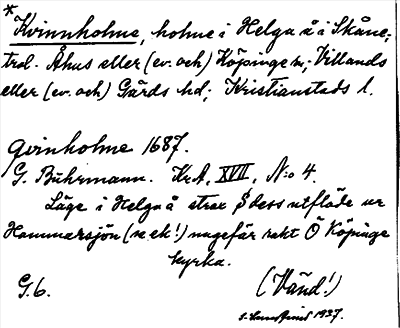 *
Kvinnholme, holme i Helga å i Skåne;
trol. Åhus eller (ev. och) Köpinge sn; Villands
eller (ev. och) Gärds hd; Kristianstads l.
Qvinholme 1687.
G. Buhrmann. Kr.A, XVII, N:o 4.
Läge i Helga å strax S dess utflöde ur
Hammarsjön (se ek!) ungefär rakt Ö Köpinge
kyrka.
G.6. (Vänd!)
1937.